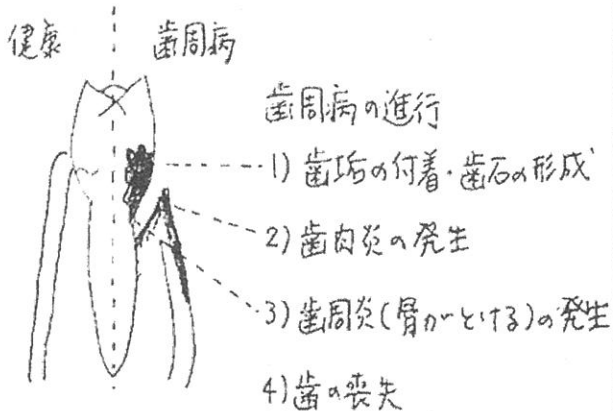 健康
歯周病
歯周病の進行
1) 歯垢の付着・歯石の形成
2) 歯肉炎の発生
3) 歯周炎(骨がとける)の発生
4) 歯の喪失